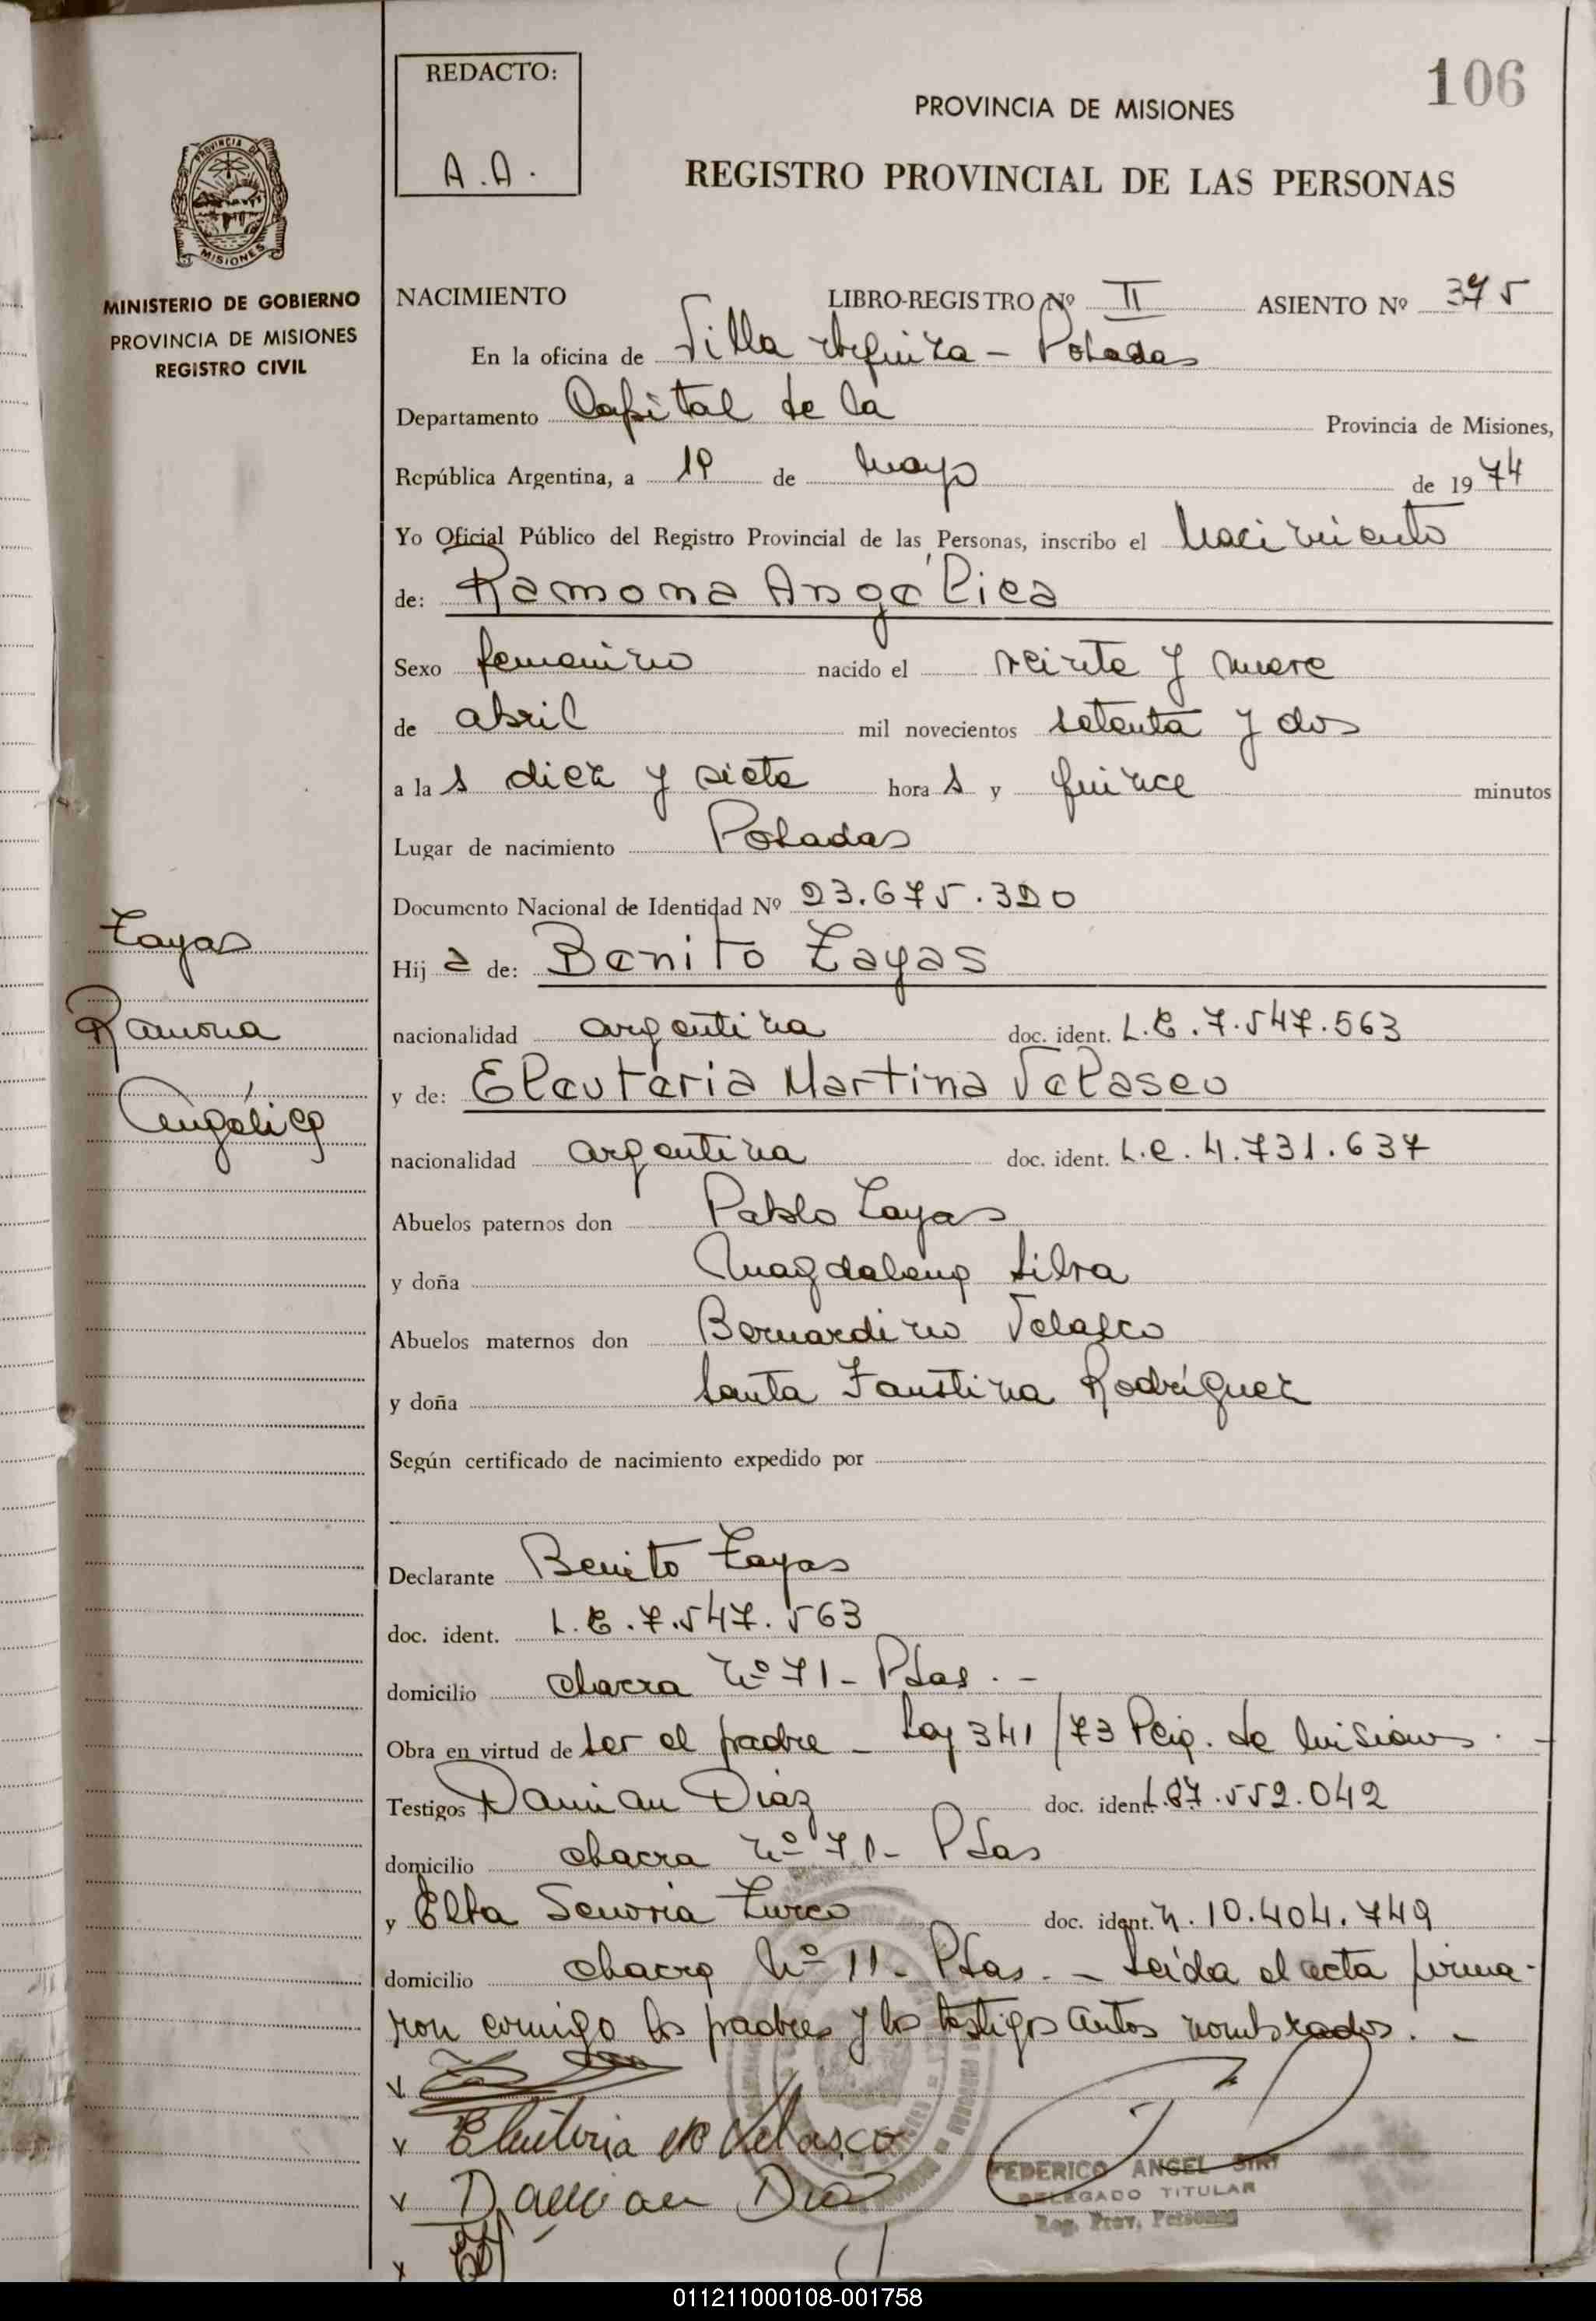 106
REDACTO:
A.A.
PROVINCIA DE MISIONES
REGISTRO PROVINCIAL DE LAS PERSONAS
PROVINCIA DE
MISIONES
MINISTERIO DE GOBIERNO
PROVINCIA DE MISIONES
REGISTRO CIVIL
NACIMIENTO LIBRO-REGISTRO Nº II ASIENTO Nº 375
En la oficina de Villa Urquiza - Posadas
Departamento Capital de la Provincia de Misiones,
República Argentina, a 1º de mayo de 1974
Yo Oficial Público del Registro Provincial de las Personas, inscribo el Nacimiento
de: Ramona Angélica
Sexo femenino nacido el veinte y nueve
de abril mil novecientos setenta y dos
a la s diez y siete hora s y quince minutos
Lugar de nacimiento Posadas
Documento Nacional de Identidad Nº 23.675.320
Hij a de: Benito Zayas
nacionalidad argentina doc. ident. L.E.7.547.563
y de: Eleuteria Martina Velasco
nacionalidad argentina doc. ident. L.C.4.731.637
Abuelos paternos don Pablo Zayas
y doña Magdalena Silva
Abuelos maternos don Bernardino Velasco
y doña Santa Faustina Rodríguez
Según certificado de nacimiento expedido por
Declarante Benito Zayas
doc. ident. L.E.7.547.563
domicilio chacra Nº 71- Pdas.-
Obra en virtud de ser el padre - Ley 341/73 de Misiones.-
Testigos Damian Diaz doc. ident. 7.552.042
domicilio chacra Nº 71- Pdas
y Elba Zurco doc. ident. 10.404.749
domicilio chacra Nº 11- Pdas.- Leída el acta firma-
ron conmigo los padres y los testigos antes nombrados.-
Zayas
Ramona
Angélica
Eleuteria de Velasco
Damian Diaz
FEDERICO ANGEL SIRI
DELEGADO TITULAR
Reg. Prov. Personas
011211000108-001758